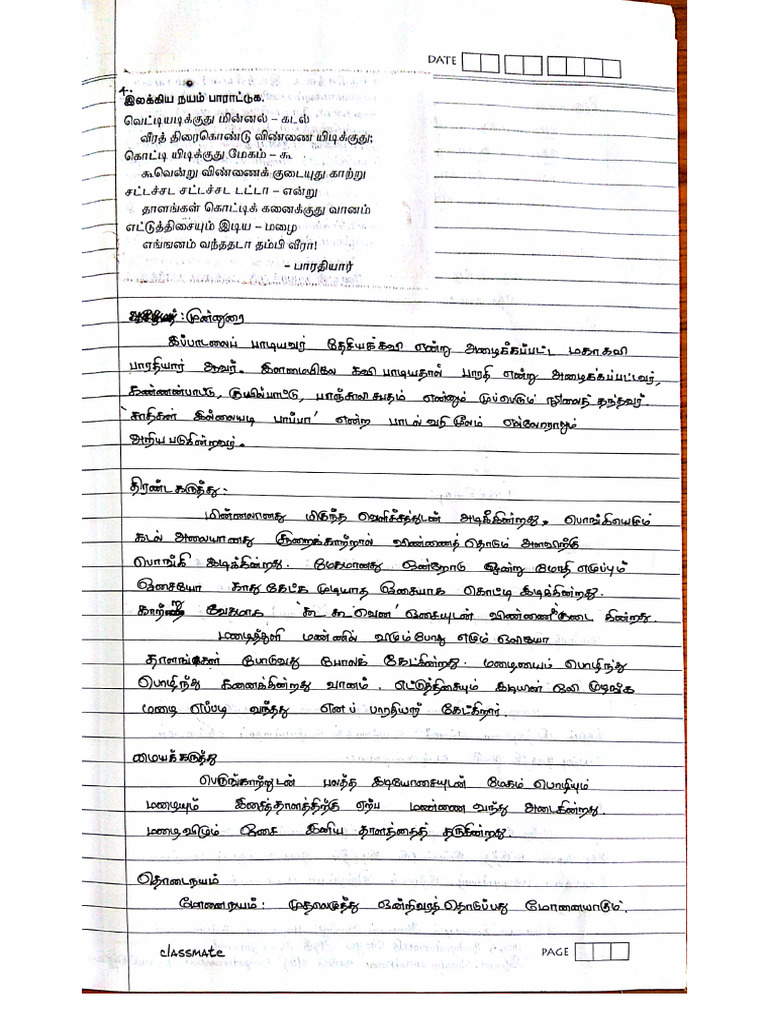 DATE
4.
இலக்கிய நயம் பாராட்டுக.
வெட்டியடிக்குது மின்னல் – கடல்
வீரத் திரைகொண்டு விண்ணை யிடிக்குது;
கொட்டி யிடிக்குது மேகம் – கூ
கூவென்று விண்ணைக் குடையுது காற்று
சட்டச்சட சட்டச்சட டட்டா – என்று
தாளங்கள் கொட்டிக் கனைக்குது வானம்
எட்டுத்திசையும் இடிய – மழை
எங்ஙனம் வந்ததடா தம்பி வீரா!
– பாரதியார்
: முன்னுரை
இப்பாடலைப் பாடியவர் தேசியக்கவி என்று அழைக்கப்பட்ட மகாகவி
பாரதியார் ஆவர். இளமையிலே கவி பாடியதால் பாரதி என்று அழைக்கப்பட்டவர்,
கண்ணன்பாட்டு, குயில்பாட்டு, பாஞ்சாலி சபதம் என்னும் முப்பெரும் நூலைத் தந்தவர்.
'சாதிகள் இல்லையடி பாப்பா' என்ற பாடல் வரி மூலம் எல்லோராலும்
அறிய படுகின்றவர்.
திரண்ட கருத்து:
மின்னலானது மிகுந்த வெளிச்சத்துடன் அடிக்கின்றது. பொங்கியெழும்
கடல் அலையானது சூறைக்காற்றால் விண்ணைத் தொடும் அளவிற்கு
பொங்கி இடிக்கின்றது. மேகமானது ஒன்றோடு ஒன்று மோதி எழுப்பும்
ஓசையோ காது கேட்க முடியாத ஓசையாக கொட்டி இடிக்கின்றது.
காற்று வேகமாக 'கூ கூ வென' ஓசையுடன் விண்ணை குடைகின்றது.
மழைத்துளி மண்ணில் விழும்போது எழும் ஒலியோ
தாளங்கள் போடுவது போலக் கேட்கின்றது. மழையையும் பொழிந்து
பொழிந்து கனைக்கின்றது வானம். எட்டுத்திசையும் இடியின் ஒலி முழங்க
மழை எப்படி வந்தது எனப் பாரதியார் கேட்கிறார்.
மையக்கருத்து
பெருங்காற்றுடன் பலத்த இடியோசையுடன் மேகம் பொழியும்
மழையும் இசைத்தாளத்திற்கு ஏற்ப மண்ணை வந்து அடைகின்றது.
மழைவிழும் ஓசை இனிய தாளத்தைத் தருகின்றது.
தொடைநயம்
மோனைநயம்: முதலெழுத்து ஒன்றிவரத் தொடுப்பது மோனையாகும்.
classmate
PAGE